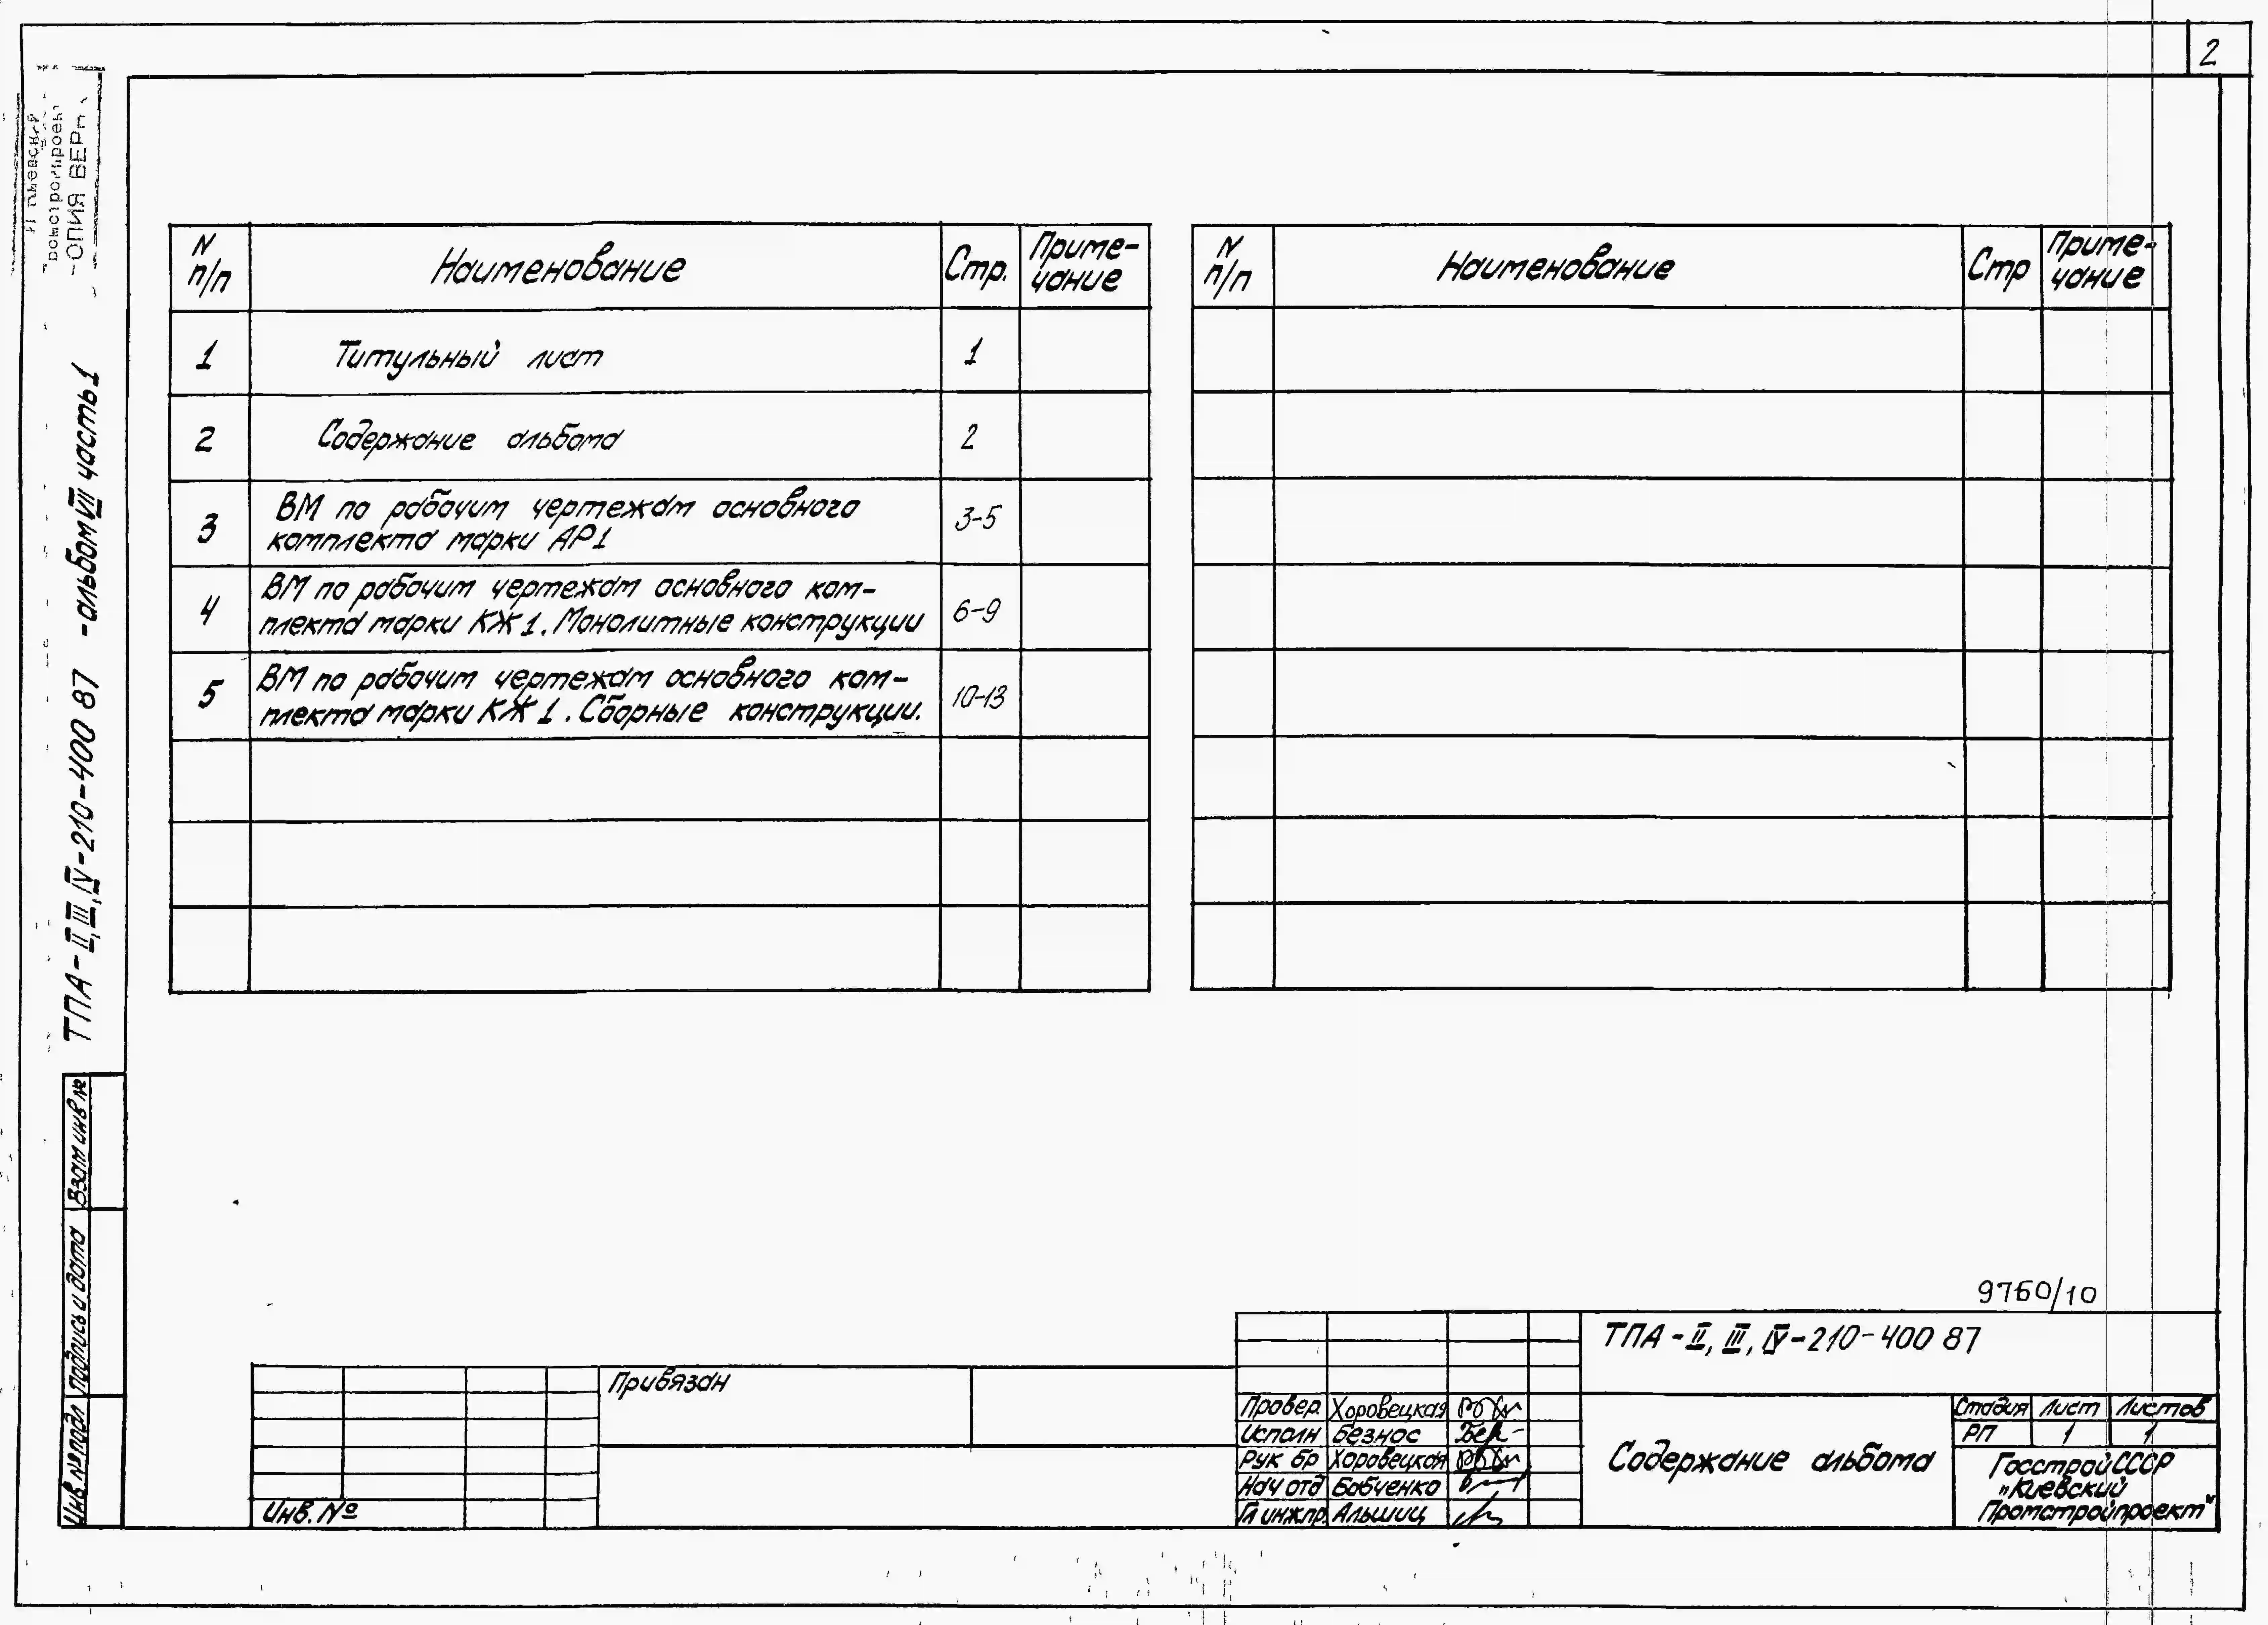 2
N п/п Наименование Стр. Приме-чание
1 Титульный лист 1
2 Содержание альбома 2
3 ВМ по рабочим чертежам основного 3-5
комплекта марки АР1
4 ВМ по рабочим чертежам основного ком- 6-9
плекта марки КЖ1. Монолитные конструкции
5 ВМ по рабочим чертежам основного ком- 10-13
плекта марки КЖ1. Сборные конструкции.
N п/п Наименование Стр Приме-чание
ТПА-II,III,IV-210-400 87 -альбом VII часть 1
Взам инв №
Подпись и дата
Инв № подл
9760/10
ТПА-II, III, IV-210-400 87
Привязан
Инв. №
Провер. Хоровецкая
Исполн Безнос
Рук бр Хоровецкая
Нач отд Бабченко
Гл инж.пр. Альшиц
Содержание альбома
Стадия Лист Листов
РП 1 1
Госстрой СССР
"Киевский
Промстройпроект"